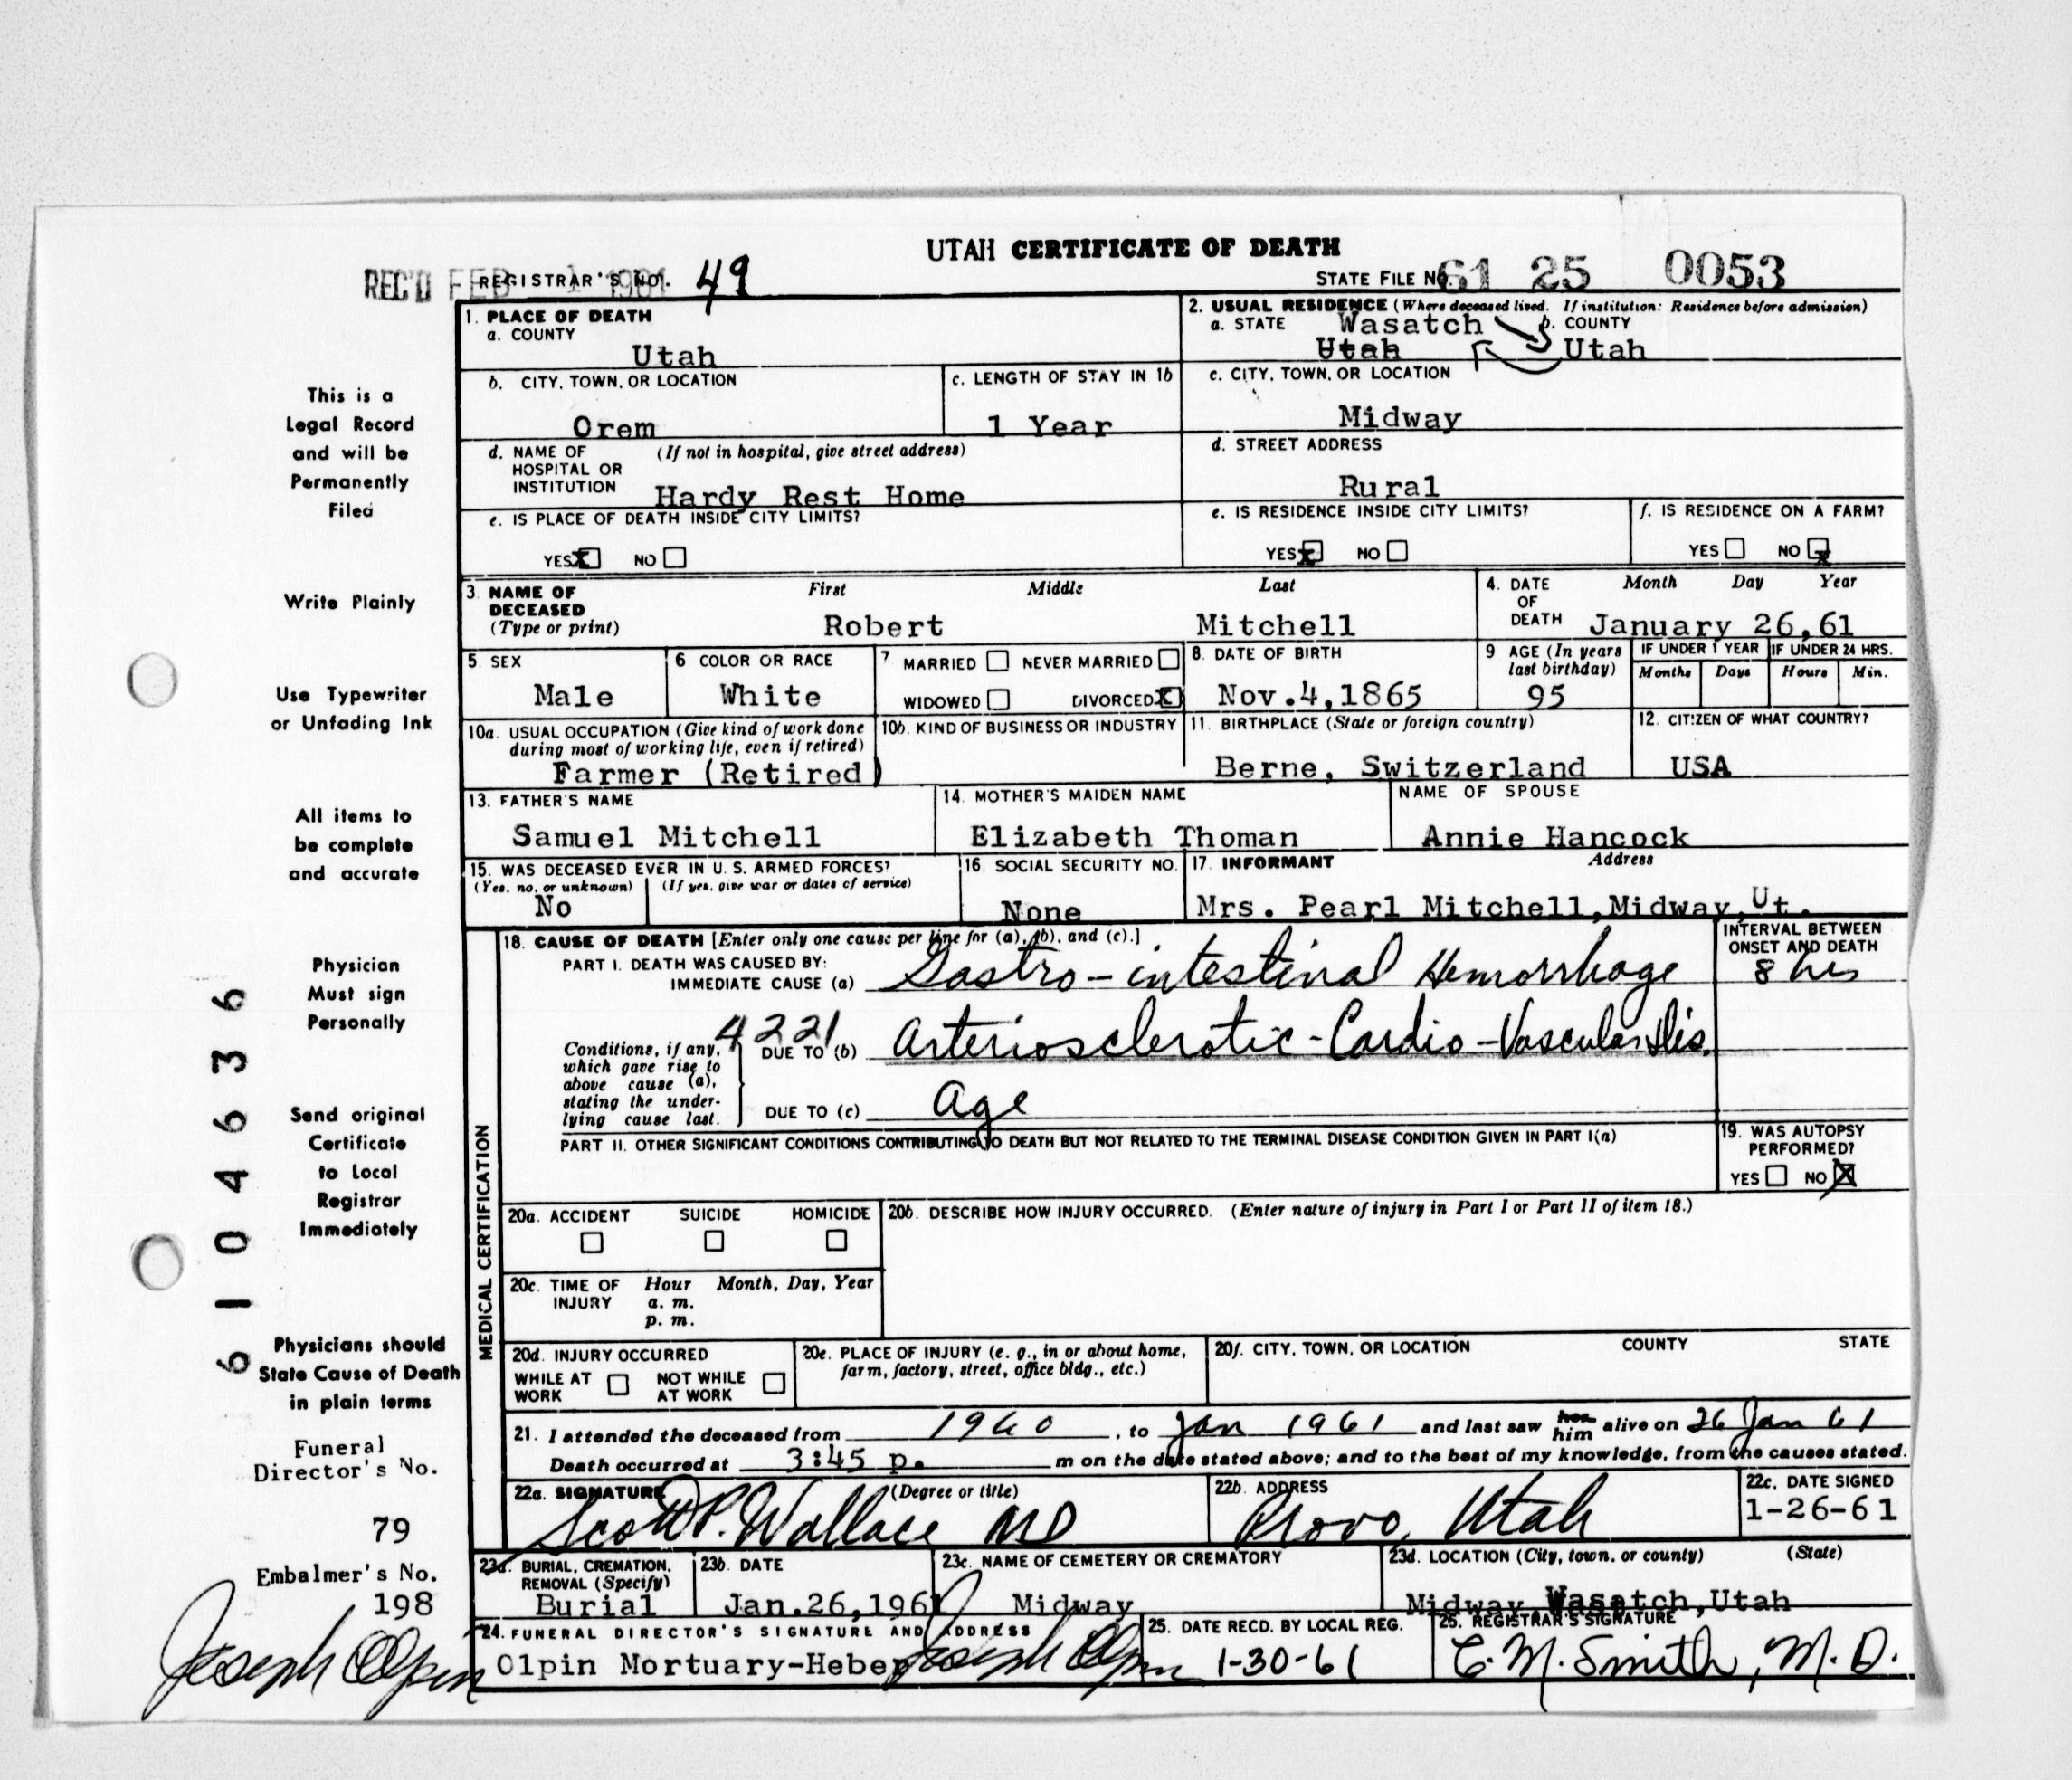 UTAH CERTIFICATE OF DEATH
REC'D FEB 1 1961 REGISTRAR'S NO. 49 STATE FILE NO. 61 25 0053
1. PLACE OF DEATH
a. COUNTY
Utah
2. USUAL RESIDENCE (Where deceased lived. If institution: Residence before admission)
a. STATE Wasatch b. COUNTY
Utah Utah
b. CITY, TOWN, OR LOCATION
Orem
c. LENGTH OF STAY IN 1b
1 Year
c. CITY, TOWN, OR LOCATION
Midway
d. NAME OF (If not in hospital, give street address)
HOSPITAL OR
INSTITUTION Hardy Rest Home
d. STREET ADDRESS
Rural
e. IS PLACE OF DEATH INSIDE CITY LIMITS?
YES X NO
e. IS RESIDENCE INSIDE CITY LIMITS?
YES X NO
f. IS RESIDENCE ON A FARM?
YES NO X
3. NAME OF DECEASED (Type or print)
First Middle Last
Robert Mitchell
4. DATE OF DEATH
Month Day Year
January 26,61
5. SEX
Male
6 COLOR OR RACE
White
7 MARRIED NEVER MARRIED
WIDOWED DIVORCED X
8. DATE OF BIRTH
Nov.4,1865
9 AGE (In years last birthday)
95
IF UNDER 1 YEAR IF UNDER 24 HRS.
Months Days Hours Min.
10a. USUAL OCCUPATION (Give kind of work done
during most of working life, even if retired)
Farmer (Retired)
10b. KIND OF BUSINESS OR INDUSTRY
11. BIRTHPLACE (State or foreign country)
Berne, Switzerland
12. CITIZEN OF WHAT COUNTRY?
USA
13. FATHER'S NAME
Samuel Mitchell
14. MOTHER'S MAIDEN NAME
Elizabeth Thoman
NAME OF SPOUSE
Annie Hancock
15. WAS DECEASED EVER IN U. S. ARMED FORCES?
(Yes, no, or unknown) (If yes, give war or dates of service)
No
16. SOCIAL SECURITY NO.
None
17. INFORMANT Address
Mrs. Pearl Mitchell,Midway,Ut.
MEDICAL CERTIFICATION
18. CAUSE OF DEATH [Enter only one cause per line for (a), (b), and (c).]
PART I. DEATH WAS CAUSED BY:
IMMEDIATE CAUSE (a) Gastro-intestinal Hemorrhage
INTERVAL BETWEEN
ONSET AND DEATH
8 hrs
4221
Conditions, if any,
which gave rise to
above cause (a),
stating the under-
lying cause last.
DUE TO (b) Arteriosclerotic-Cardio-Vascular Dis.
DUE TO (c) Age
PART II. OTHER SIGNIFICANT CONDITIONS CONTRIBUTING TO DEATH BUT NOT RELATED TO THE TERMINAL DISEASE CONDITION GIVEN IN PART I(a)
19. WAS AUTOPSY
PERFORMED?
YES NO X
20a. ACCIDENT SUICIDE HOMICIDE
20b. DESCRIBE HOW INJURY OCCURRED. (Enter nature of injury in Part I or Part II of item 18.)
20c. TIME OF INJURY
Hour Month, Day, Year
a. m.
p. m.
20d. INJURY OCCURRED
WHILE AT WORK NOT WHILE AT WORK
20e. PLACE OF INJURY (e. g., in or about home,
farm, factory, street, office bldg., etc.)
20f. CITY, TOWN, OR LOCATION COUNTY STATE
21. I attended the deceased from 1960, to Jan 1961 and last saw her him alive on 26 Jan 61
Death occurred at 3:45 p. m on the date stated above; and to the best of my knowledge, from the causes stated.
22a. SIGNATURE (Degree or title)
Scott P. Wallace MD
22b. ADDRESS
Provo, Utah
22c. DATE SIGNED
1-26-61
23a. BURIAL, CREMATION,
REMOVAL (Specify)
Burial
23b. DATE
Jan.26,1961
23c. NAME OF CEMETERY OR CREMATORY
Midway
23d. LOCATION (City, town, or county) (State)
Midway Wasatch,Utah
24. FUNERAL DIRECTOR'S SIGNATURE AND ADDRESS
Olpin Mortuary-Heber Joseph Olpin
25. DATE RECD. BY LOCAL REG.
1-30-61
25. REGISTRAR'S SIGNATURE
C. M. Smith, M. D.
This is a
Legal Record
and will be
Permanently
Filed
Write Plainly
Use Typewriter
or Unfading Ink
All items to
be complete
and accurate
Physician
Must sign
Personally
Send original
Certificate
to Local
Registrar
Immediately
Physicians should
State Cause of Death
in plain terms
Funeral
Director's No.
79
Embalmer's No.
198
Joseph Olpin
6104636